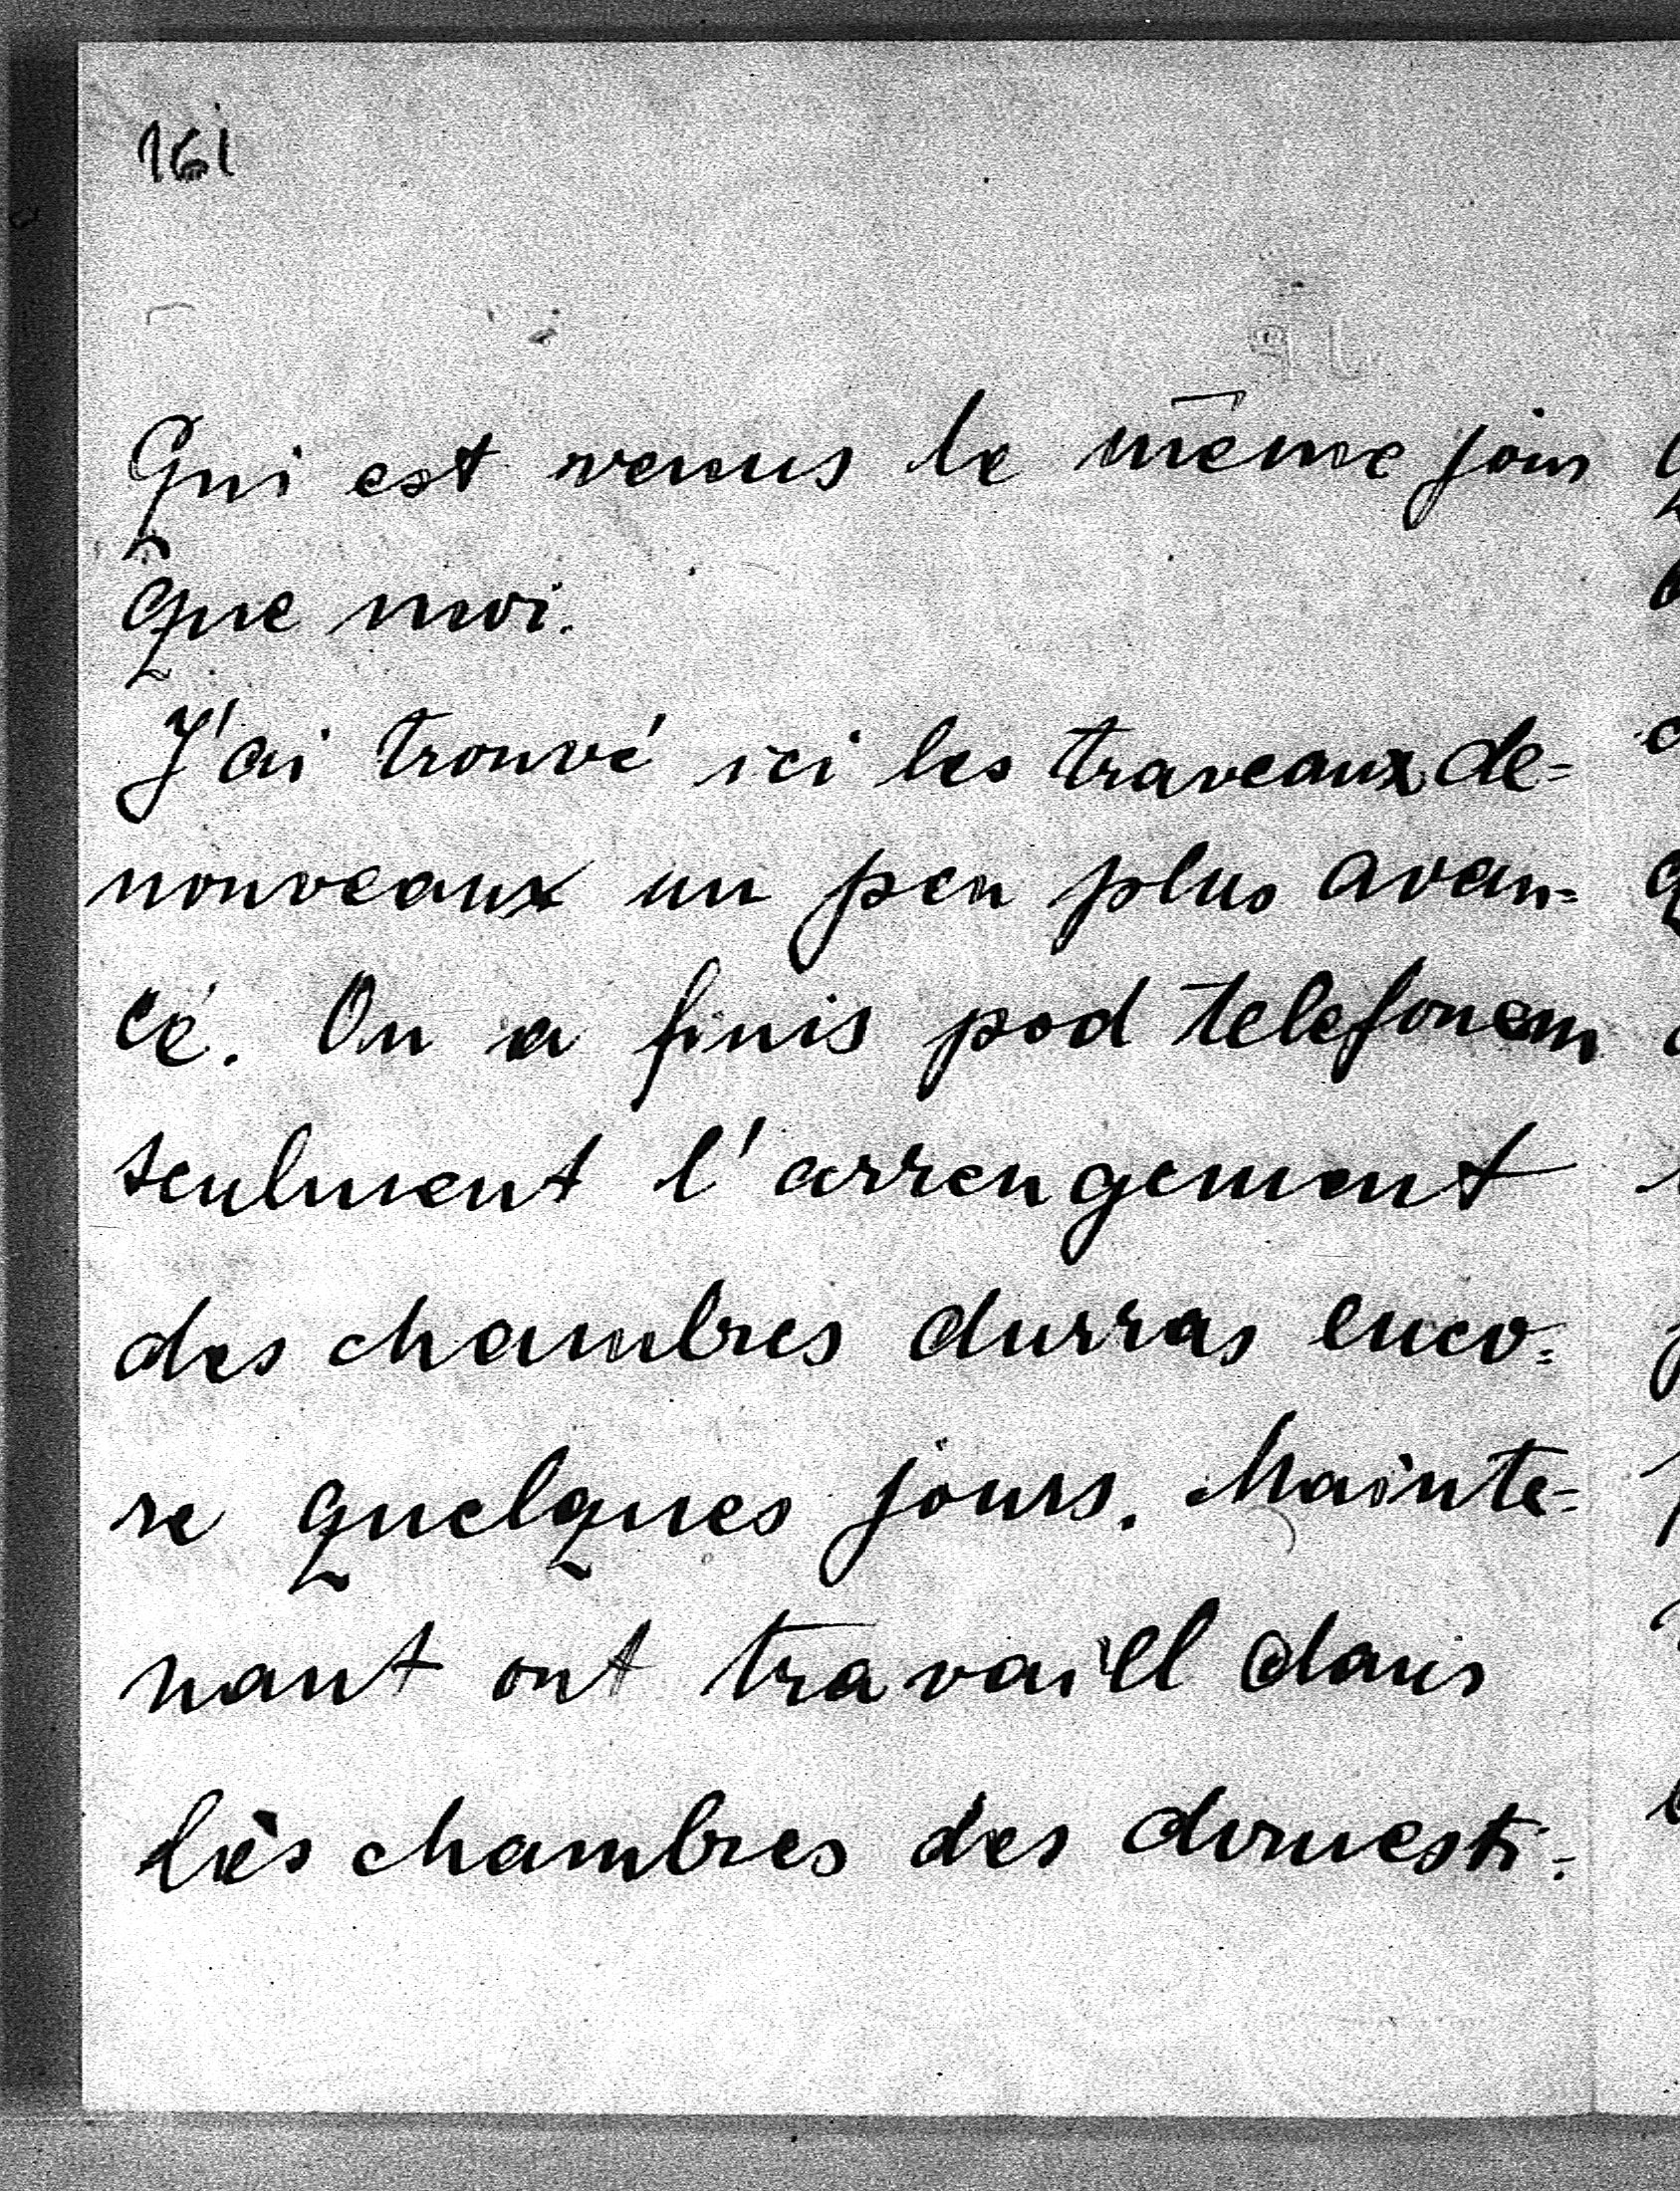 161
Qui est venus le même jour
que moi.
J'ai trouvé ici les traveaux de=
nouveaux un peu plus avan=
cé. On a finis pod telefonem
seulment l'arrengement
des chambres durras enco=
re quelques jours. Mainte=
nant ont travaill dans
lès chambres des domesti=